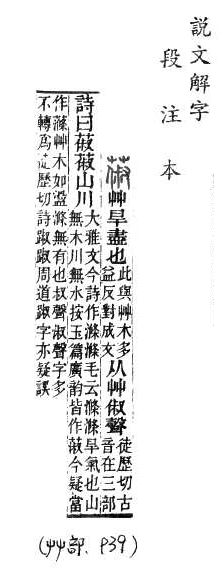 説文解字
段注本
蔋艸旱盡也此與艸木多
益反對成文从艸俶聲徒歷切古
音在三部
詩曰蔋蔋山川大雅文今詩作滌滌毛云滌滌旱氣也山
無木川無水按玉篇廣韵皆作蔋今疑當
作䕌艸木如盪滌無有也叔聲淑聲字多
不轉爲徒歷切詩踧踧周道踧字亦疑誤
(艸部. P39)